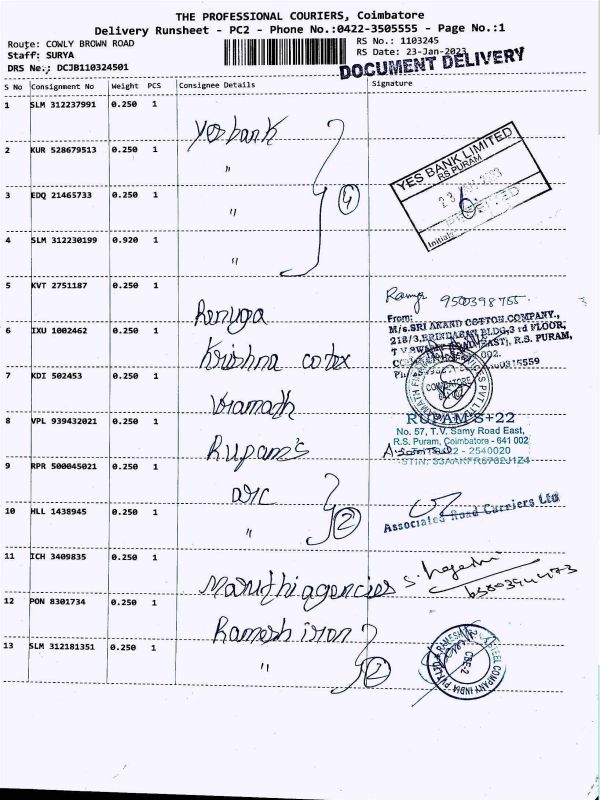 THE PROFESSIONAL COURIERS, Coimbatore
Delivery Runsheet - PC2 - Phone No.:0422-3505555 - Page No.:1
Route: COWLY BROWN ROAD
RS No.: 1103245
Staff: SURYA
RS Date: 23-Jan-2023
DRS No.: DCJB110324501
DOCUMENT DELIVERY
S No Consignment No Weight PCS Consignee Details Signature
1 SLM 312237991 0.250 1 Yes bank
YES BANK LIMITED
RS PURAM
2 KUR 528679513 0.250 1 "
3 EDQ 21465733 0.250 1 " 4
Initial:
4 SLM 312230199 0.920 1 "
5 KVT 2751187 0.250 1 Renuga
9500398755
From:
M/s.SRI ANAND COTTON COMPANY.,
218/3, BRINDABAN BLDG, 3 rd FLOOR,
(EAST), R.S. PURAM,
6 IXU 1002462 0.250 1 Krishna cotex
7 KDI 502453 0.250 1
COIMBATORE
8 VPL 939432021 0.250 1 Rupam's
RUPAM'S+22
No. 57, T.V. Samy Road East,
R.S. Puram, Coimbatore - 641 002
2540020
9 RPR 500045021 0.250 1 arc
10 HLL 1438945 0.250 1 " 2
Associated Road Carriers Ltd
11 ICH 3409835 0.250 1 Maruthi agencies
12 PON 8301734 0.250 1 Ramesh iron
13 SLM 312181351 0.250 1 " 2